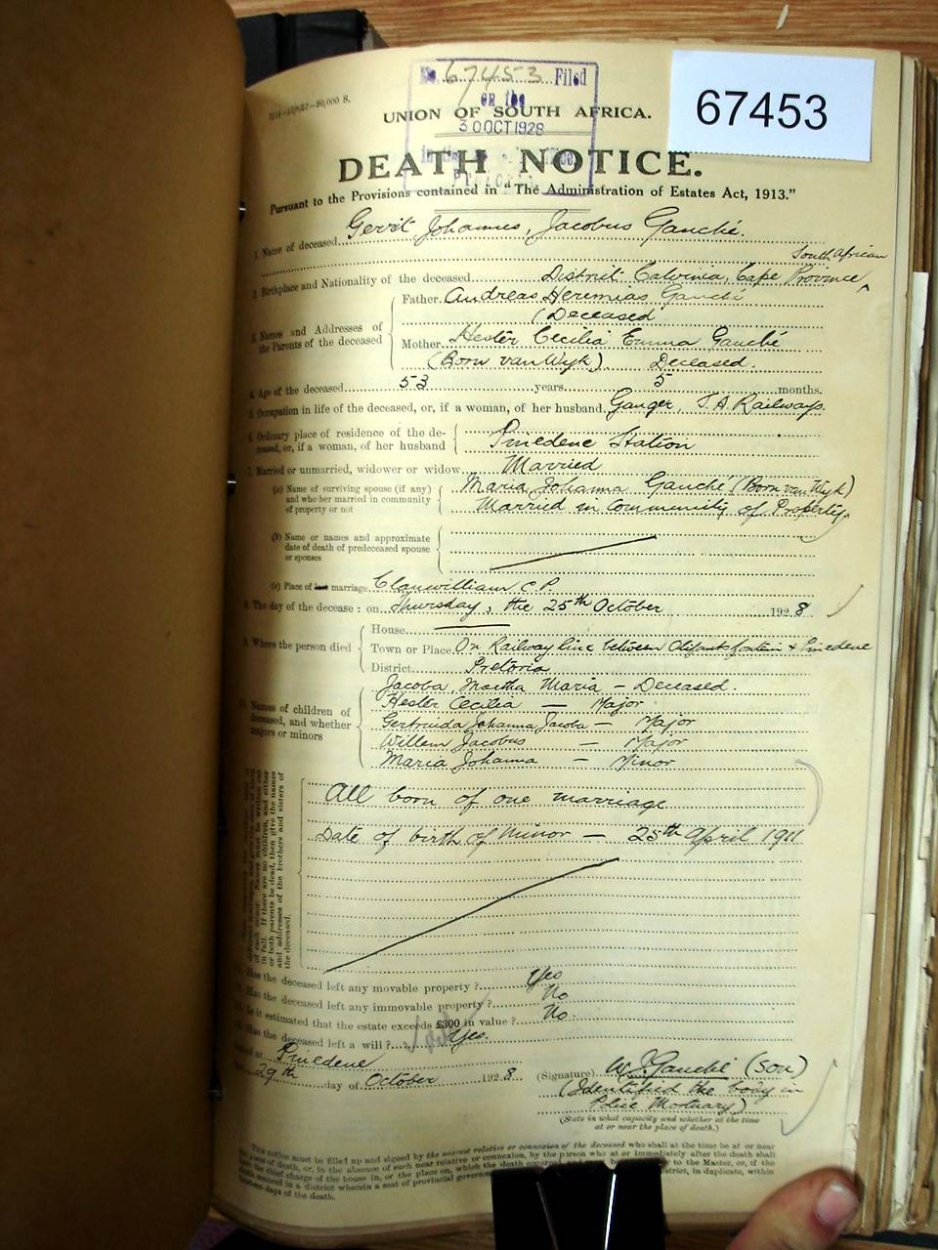 No. 67453 Filed
on the
30 OCT 1928
67453
UNION OF SOUTH AFRICA.
DEATH NOTICE.
Pursuant to the Provisions contained in "The Administration of Estates Act, 1913."
1. Name of deceased Gerrit Johannes, Jacobus Gauché.
South African
2. Birthplace and Nationality of the deceased District Calvinia, Cape Province
3. Names and Addresses of the Parents of the deceased
Father. Andreas Jeremias Gauché
(Deceased
Mother. Hester Cecilia Emma Gauché
(Born van Wyk) Deceased.
4. Age of the deceased 53 years 5 months.
5. Occupation in life of the deceased, or, if a woman, of her husband. Ganger, S.A. Railways.
6. Ordinary place of residence of the deceased, or, if a woman, of her husband
Pinedene Station
7. Married or unmarried, widower or widow Married
(a) Name of surviving spouse (if any) and whether married in community of property or not
Maria Johanna Gauché (Born van Wyk)
Married in Community of Property.
(b) Name or names and approximate date of death of predeceased spouse or spouses
(c) Place of last marriage. Clanwilliam C.P.
8. The day of the decease: on Thursday, the 25th October 1928
9. Where the person died
House
Town or Place. On Railway line between Olifantsfontein & Pinedene
District Pretoria
10. Names of children of deceased, and whether majors or minors
Jacoba Martha Maria – Deceased.
Hester Cecilia — Major
Gertruida Johanna Jacoba — Major
Willem Jacobus – Major
Maria Johanna – Minor
of each minor.
in full. If there are no children, and either
or both parents be dead, then give the names
and addresses of the brothers and sisters of
the deceased.
All born of one marriage
Date of birth of Minor — 25th April 1911
Has the deceased left any movable property? Yes
Has the deceased left any immovable property? No
Is it estimated that the estate exceeds £300 in value? No.
Has the deceased left a will? Yes.
at Pinedene
29th day of October 1928
(Signature) W.J. Gauché (son)
(Identified the body in
Police Mortuary)
(State in what capacity and whether at the time
at or near the place of death.)
This notice must be filled up and signed by the nearest relative or connexion of the deceased who shall at the time be at or near
place of death, or, in the absence of such near relative or connexion, by the person who at or immediately after the death shall
the chief charge of the house in, or the place on, which the death occurred and to the Master, or, if the
occurred in a district wherein a seat of provincial district, in duplicate, within
days of the death.